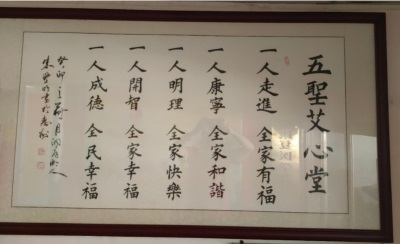 五聖艾心堂
一人走進 全家有福
一人康寧 全家和諧
一人明理 全家快樂
一人開智 全家幸福
一人成德 全民幸福
癸卯